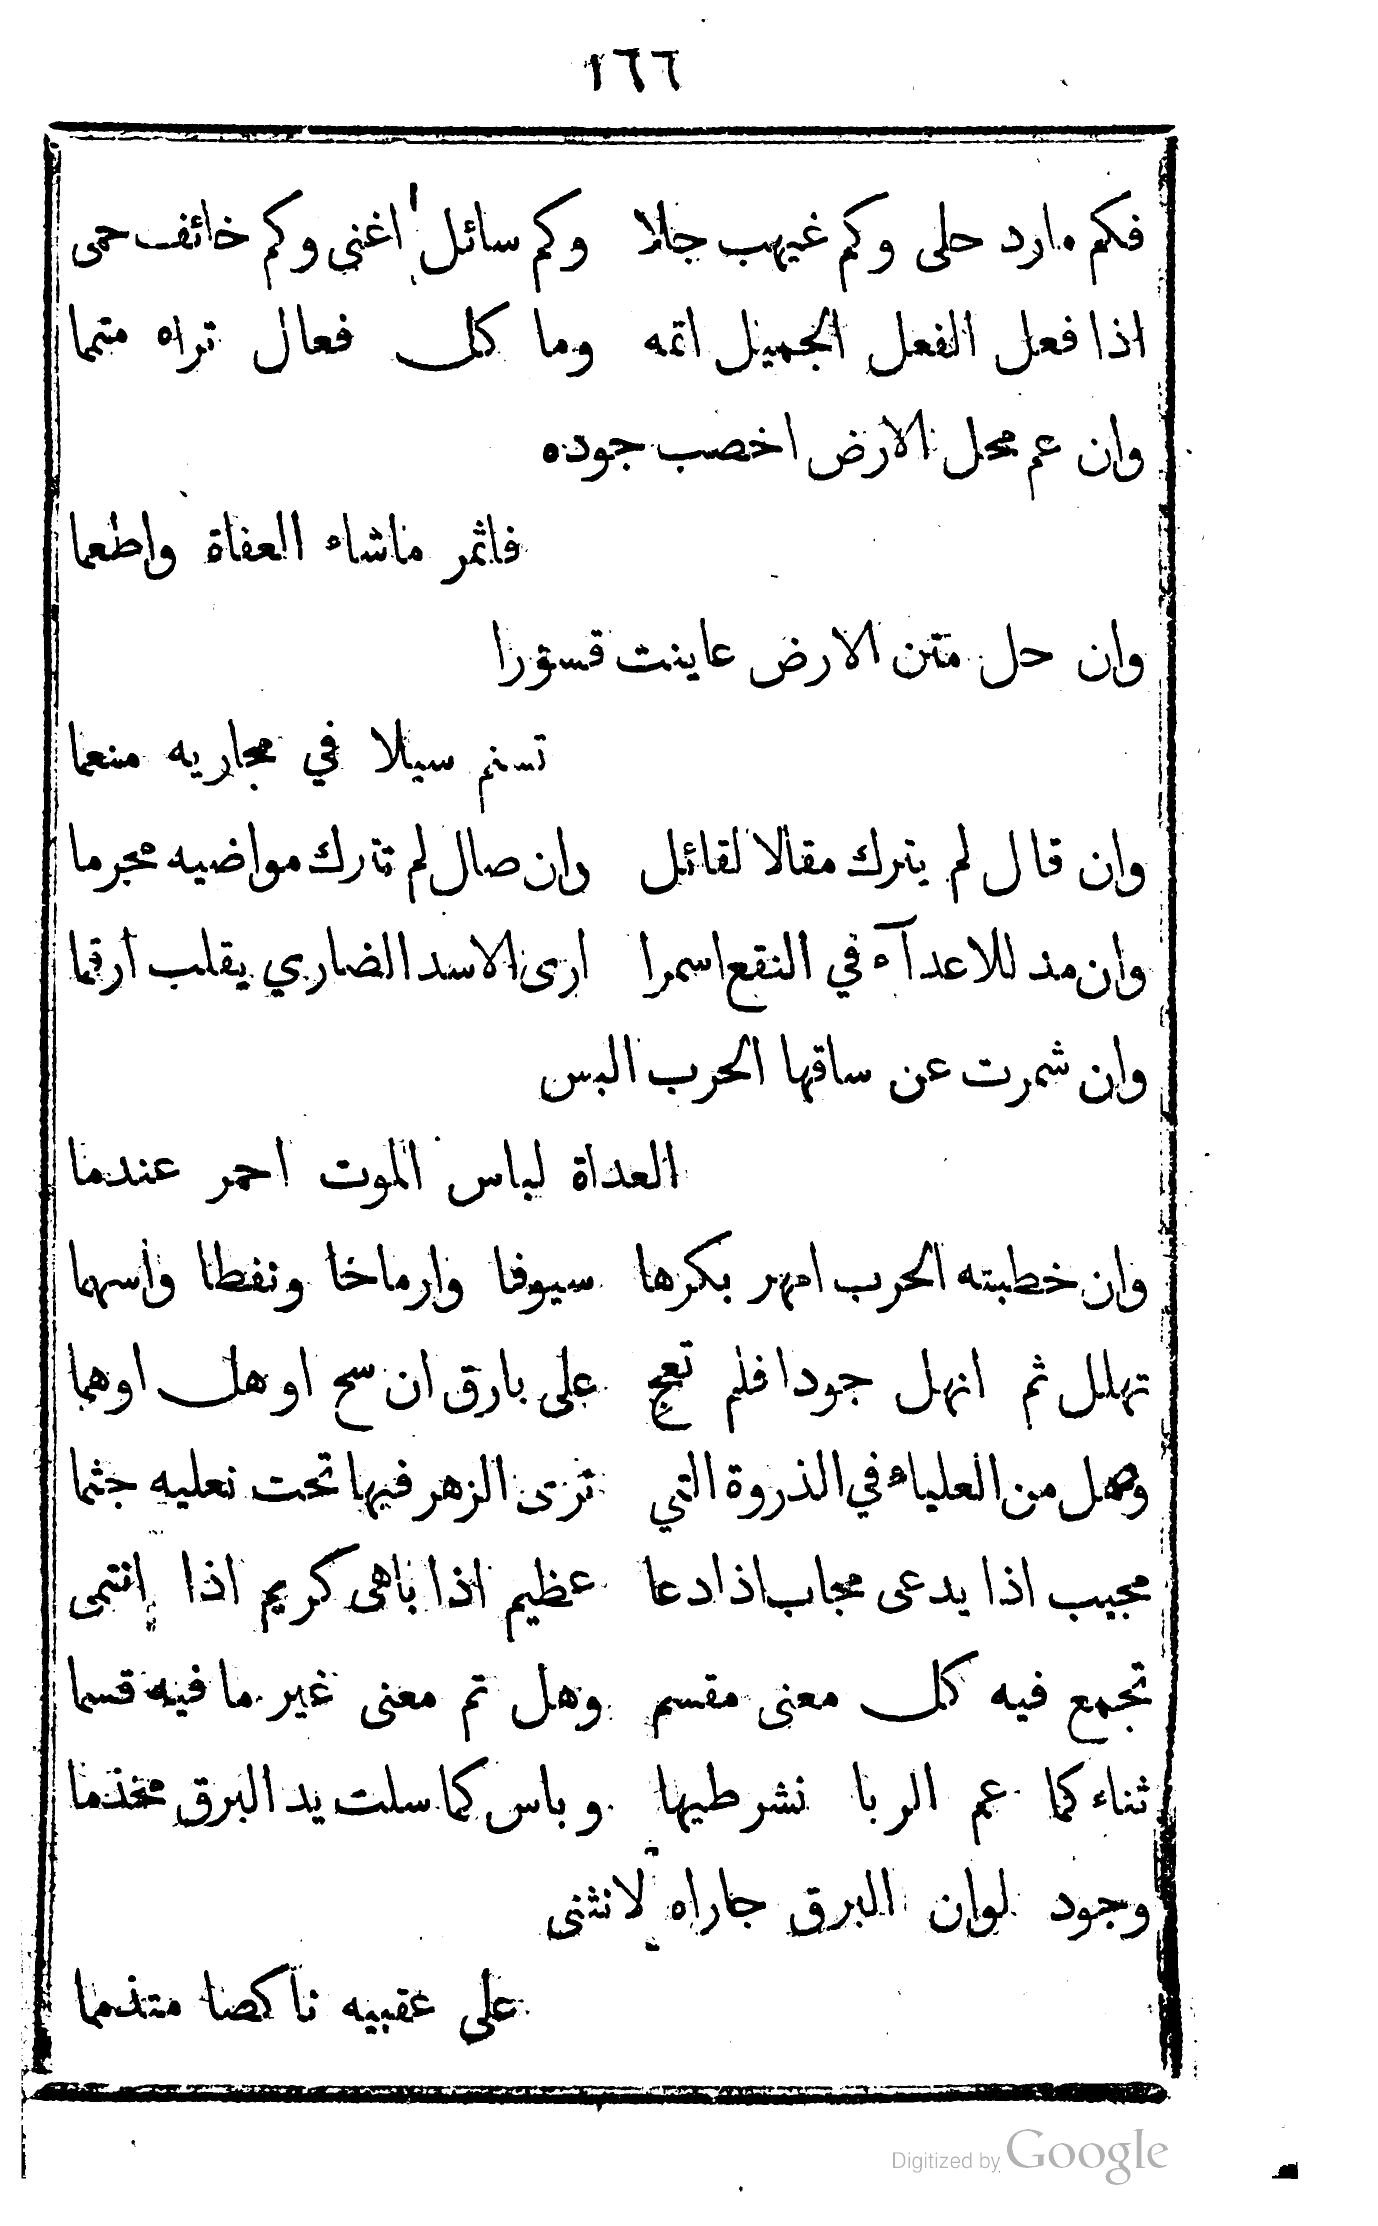 ١٦٦
فكم مارد حلى وكم غيهب جلا وكم سائل اغنى وكم خائف حمى
اذا فعل الفعل الجميل اتمه وما كل فعال تراه متمما
وان عم محل الارض اخصب جوده
فاثمر ماشاء العفاة واطعما
وان حل متن الارض عاينت قسورا
تسنم سيلا في مجاريه منعما
وان قال لم يترك مقالا لقائل وان صال لم تترك مواضيه مجرما
وان مد للاعدآء في النقع اسمرا ارى الاسد الضاري يقلب أرقما
وان شمرت عن ساقها الحرب البس
العداة لباس الموت احمر عندما
وان خطبته الحرب امهر بكرها سيوفا وارماحا ونفطا وأسهما
تهلل ثم انهل جودا فلم تعج على بارق ان سح او هل اوهما
وحل من العلياء في الذروة التي ترى الزهر فيها تحت نعليه جثما
مجيب اذا يدعى مجاب اذا دعا عظيم اذا باهى كريم اذا انتمى
تجمع فيه كل معنى مقسم وهل تم معنى غير ما فيه قسما
ثناء كما عم الربا نشر طيها وباس كما سلت يد البرق مخذما
وجود لوان البرق جاراه لانثنى
على عقبيه ناكصا متذمما
Digitized by Google